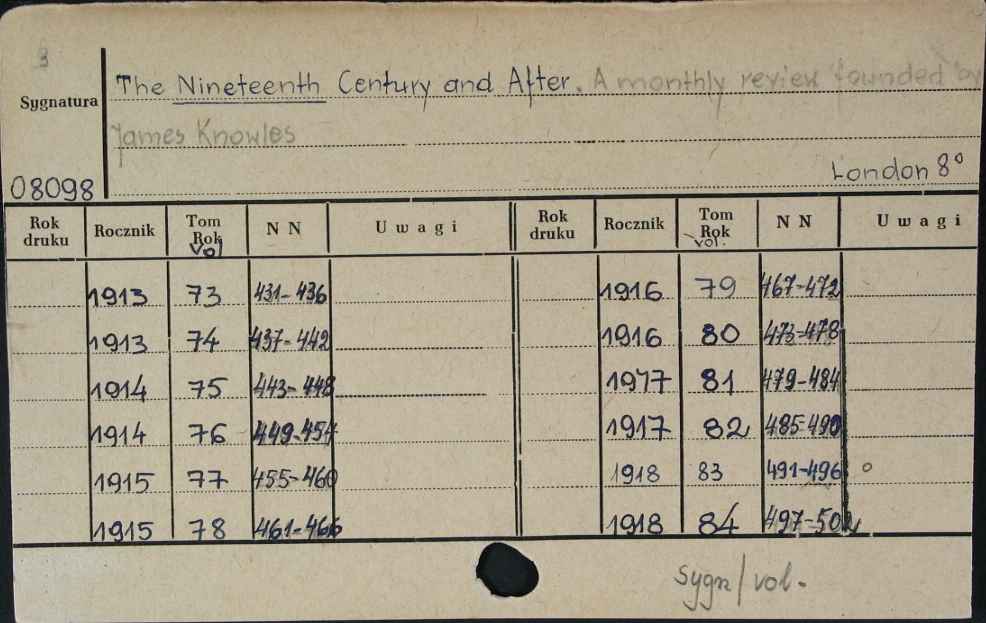 3
The Nineteenth Century and After. A monthly review founded by
Sygnatura
James Knowles
08098
London 8°
Rok druku Rocznik Tom Rok vol NN Uwagi Rok druku Rocznik Tom Rok vol. NN Uwagi
1913 73 431-436 1916 79 467-472
1913 74 437-442 1916 80 473-478
1914 75 443-448 1917 81 479-484
1914 76 449-454 1917 82 485-490
1915 77 455-460 1918 83 491-496
1915 78 461-466 1918 84 497-502
Sygn/vol.